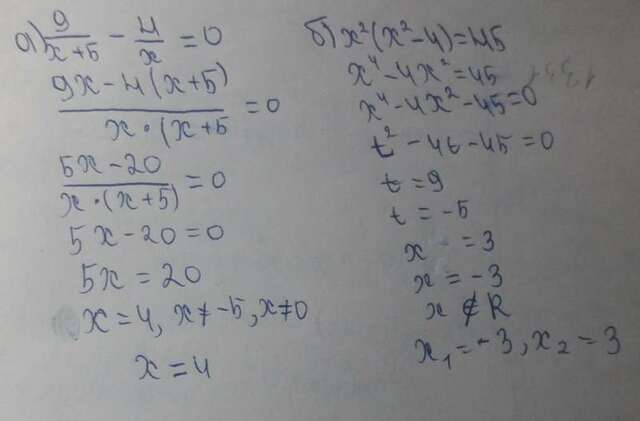 а) 9/(x+5) - 4/x = 0
(9x-4(x+5))/(x·(x+5) = 0
(5x-20)/(x·(x+5)) = 0
5x-20=0
5x=20
x=4, x≠-5, x≠0
x=4
б) x²(x²-4)=45
x⁴-4x²=45
x⁴-4x²-45=0
t²-4t-45=0
t=9
t=-5
x=3
x=-3
x∉R
x₁=-3, x₂=3